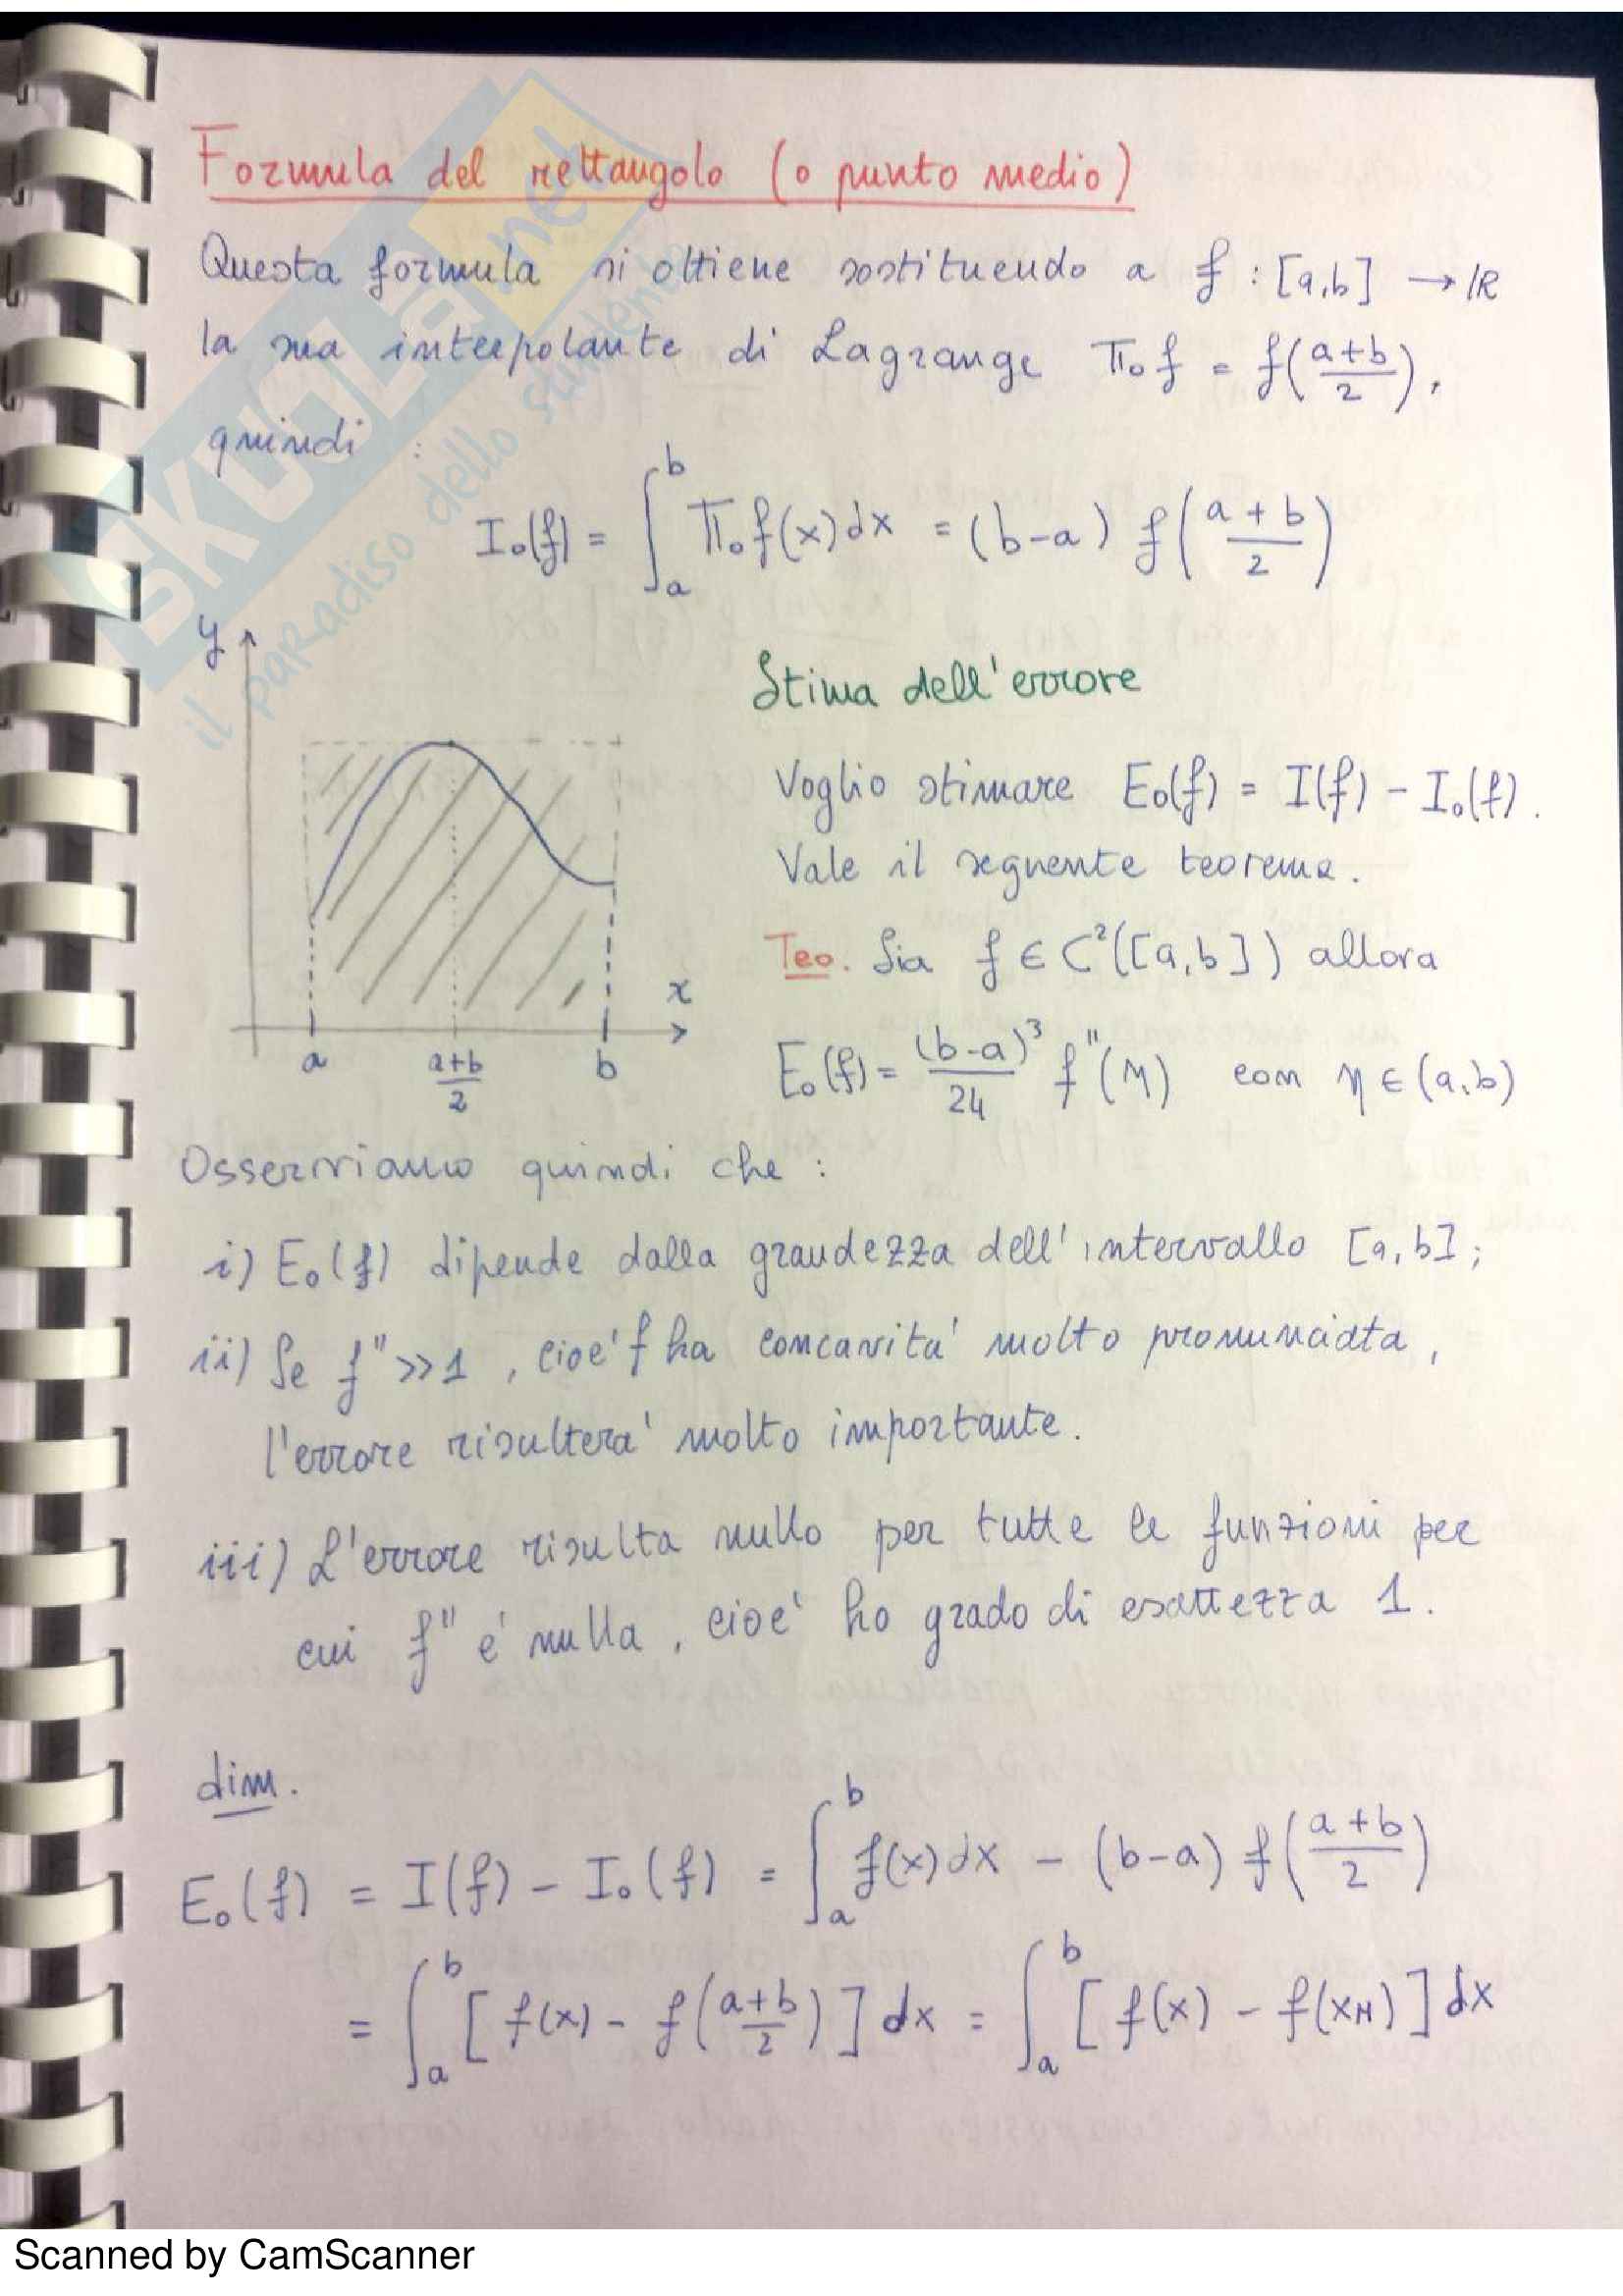 Formula del rettangolo (o punto medio)
Questa formula si ottiene sostituendo a f : [a,b] → ℝ
la sua interpolante di Lagrange Π₀f = f((a+b)/2),
quindi :
I₀(f) = ∫ₐᵇ Π₀f(x)dx = (b-a) f((a+b)/2)
y
x
a
(a+b)/2
b
Stima dell'errore
Voglio stimare E₀(f) = I(f) - I₀(f).
Vale il seguente teorema.
Teo. Sia f ∈ C²([a,b]) allora
E₀(f) = (b-a)³/24 f''(η) con η ∈ (a,b)
Osserviamo quindi che :
i) E₀(f) dipende dalla grandezza dell'intervallo [a,b];
ii) Se f'' >> 1, cioe' f ha concavita' molto pronunciata,
l'errore risultera' molto importante.
iii) L'errore risulta nullo per tutte le funzioni per
cui f'' e' nulla, cioe' ho grado di esattezza 1.
dim.
E₀(f) = I(f) - I₀(f) = ∫ₐᵇ f(x)dx - (b-a) f((a+b)/2)
= ∫ₐᵇ [f(x) - f((a+b)/2)] dx = ∫ₐᵇ [f(x) - f(xM)] dx
SKUOLA.net
il paradiso dello studente
Scanned by CamScanner